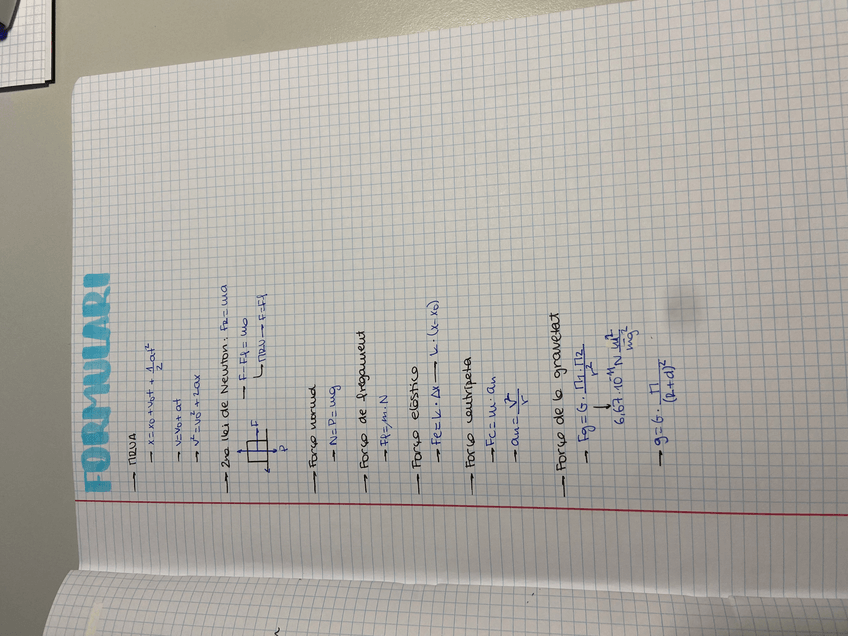 FORMULARI
→ MRUA
→ x = x0 + v0t + 1/2 at²
→ v = v0 + at
→ v² = v0² + 2ax
→ 2na llei de Newton: FR = ma
→ F - Ff = ma
↳ MRU → F = Ff
F
P
→ Força normal
→ N = P = mg
→ Força de fregament
→ Ff = μ · N
→ Força elàstica
→ Fe = k · Δx → k · (x - x0)
→ Força centrípeta
→ Fc = m · an
→ an = v²/r
→ Força de la gravetat
→ Fg = G · M1 · M2 / r²
↓
6,67 · 10⁻¹¹ N m²/kg²
→ g = G · M/(R+d)²